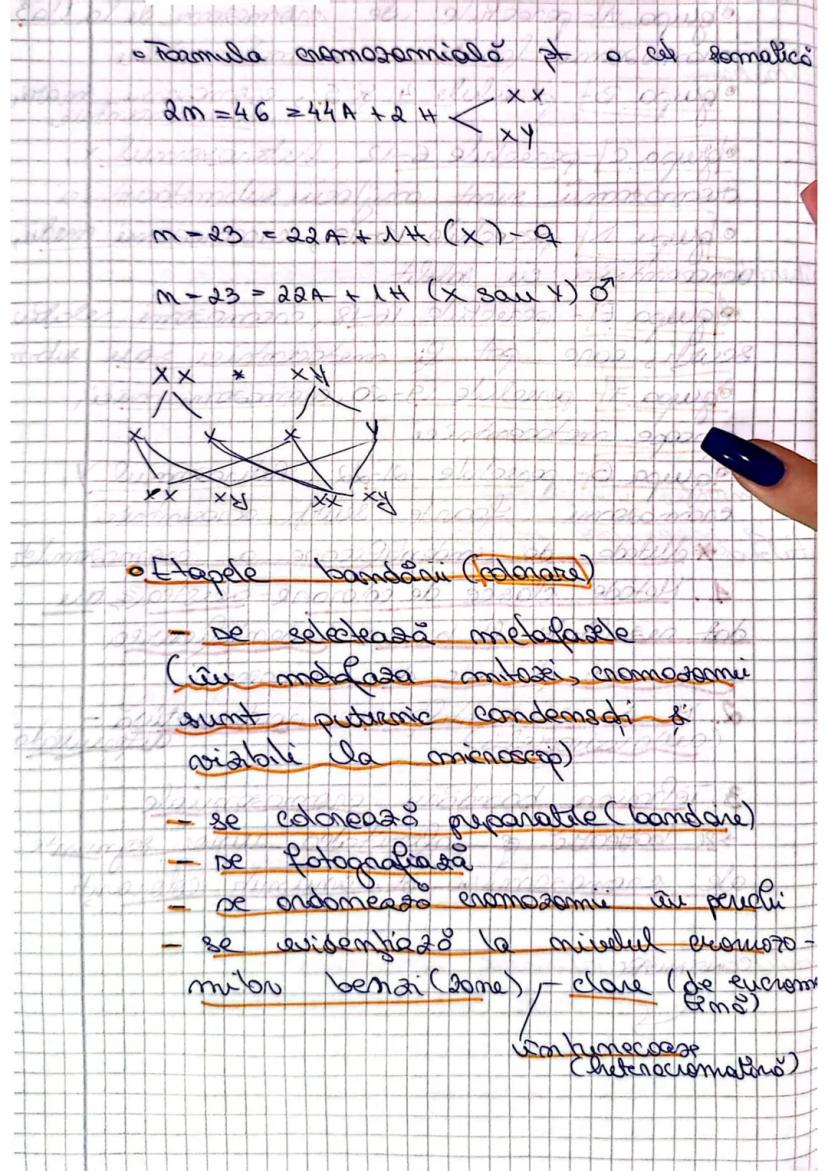 • Formula cromozomială pt o cel somatică
2n = 46 = 44A + 2H < XX
XY
n = 23 = 22A + 1H (X) - ♀
n = 23 = 22A + 1H (X sau Y) ♂
XX * XY
X X X Y
XX XY XX XY
• Etapele bandării (colorare)
- se selectează metafazele
(în metafaza mitozei, cromozomii
sunt puternic condensați și
vizibili la microscop)
- se colorează preparatele (bandare)
- se fotografiază
- se ordonează cromozomii în perechi
- se evidențiază la nivelul cromozo-
milor benzi (zone) - clare (de eucrom
atină)
întunecoase
(heterocromatină)